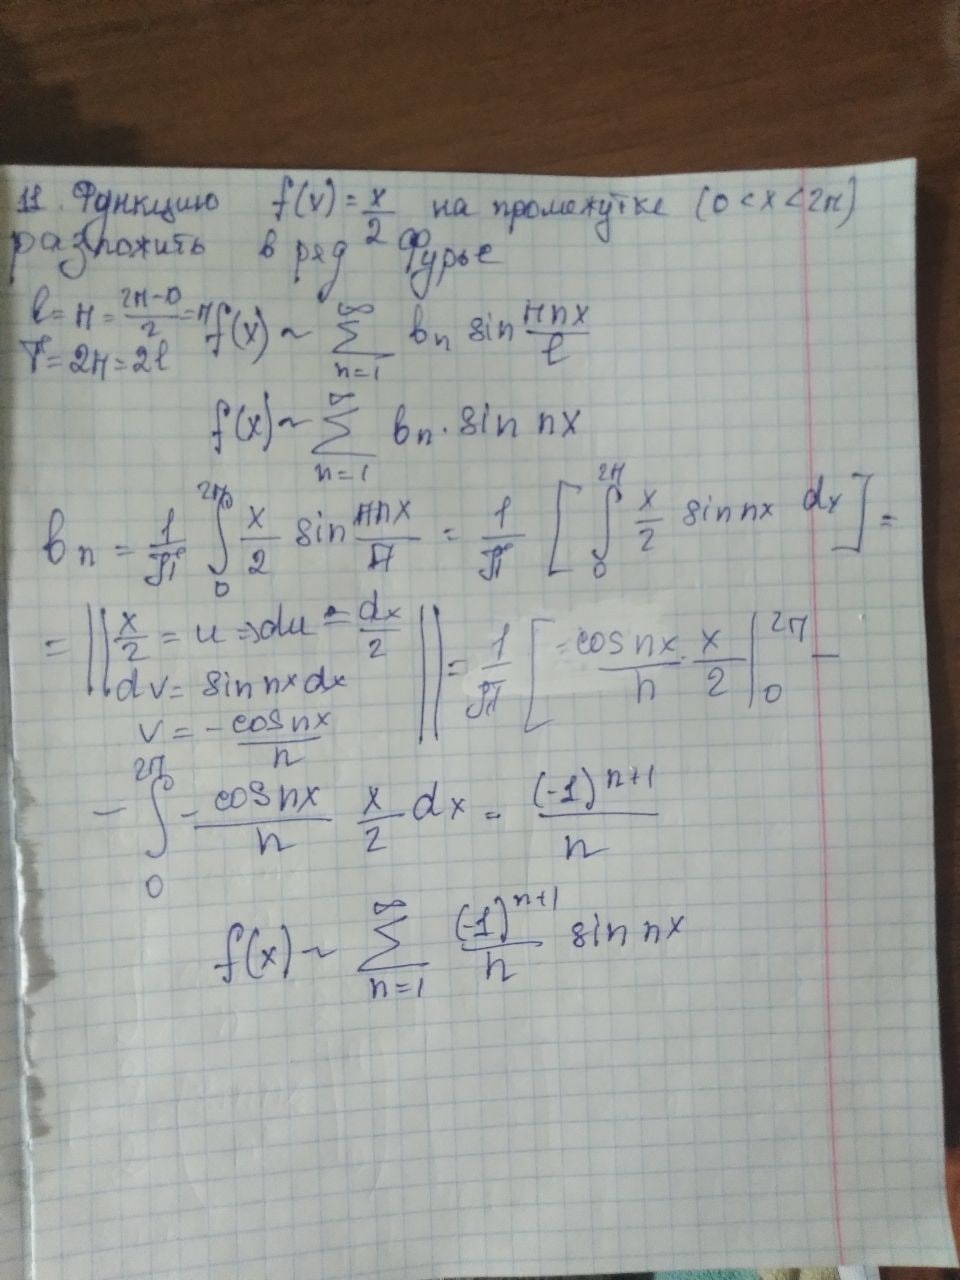 11. Функцию f(x) = x/2 на промежутке (0 < x < 2π)
разложить в ряд Фурье
l = π = (2π-0)/2 = π f(x) ~ ∑_{n=1}^{∞} b_n sin πnx/l
T = 2π = 2l
f(x) ~ ∑_{n=1}^{∞} b_n · sin nx
b_n = 1/π ∫_0^{2π} x/2 sin πnx/π = 1/π [ ∫_0^{2π} x/2 sin nx dx ] =
= || x/2 = u => du = dx/2 || = 1/π [ -cos nx/n · x/2 |_0^{2π} -
dv = sin nx dx
v = - cos nx/n
- ∫_0^{2π} - cos nx/n x/2 dx = (-1)^{n+1}/n
f(x) ~ ∑_{n=1}^{∞} (-1)^{n+1}/n sin nx